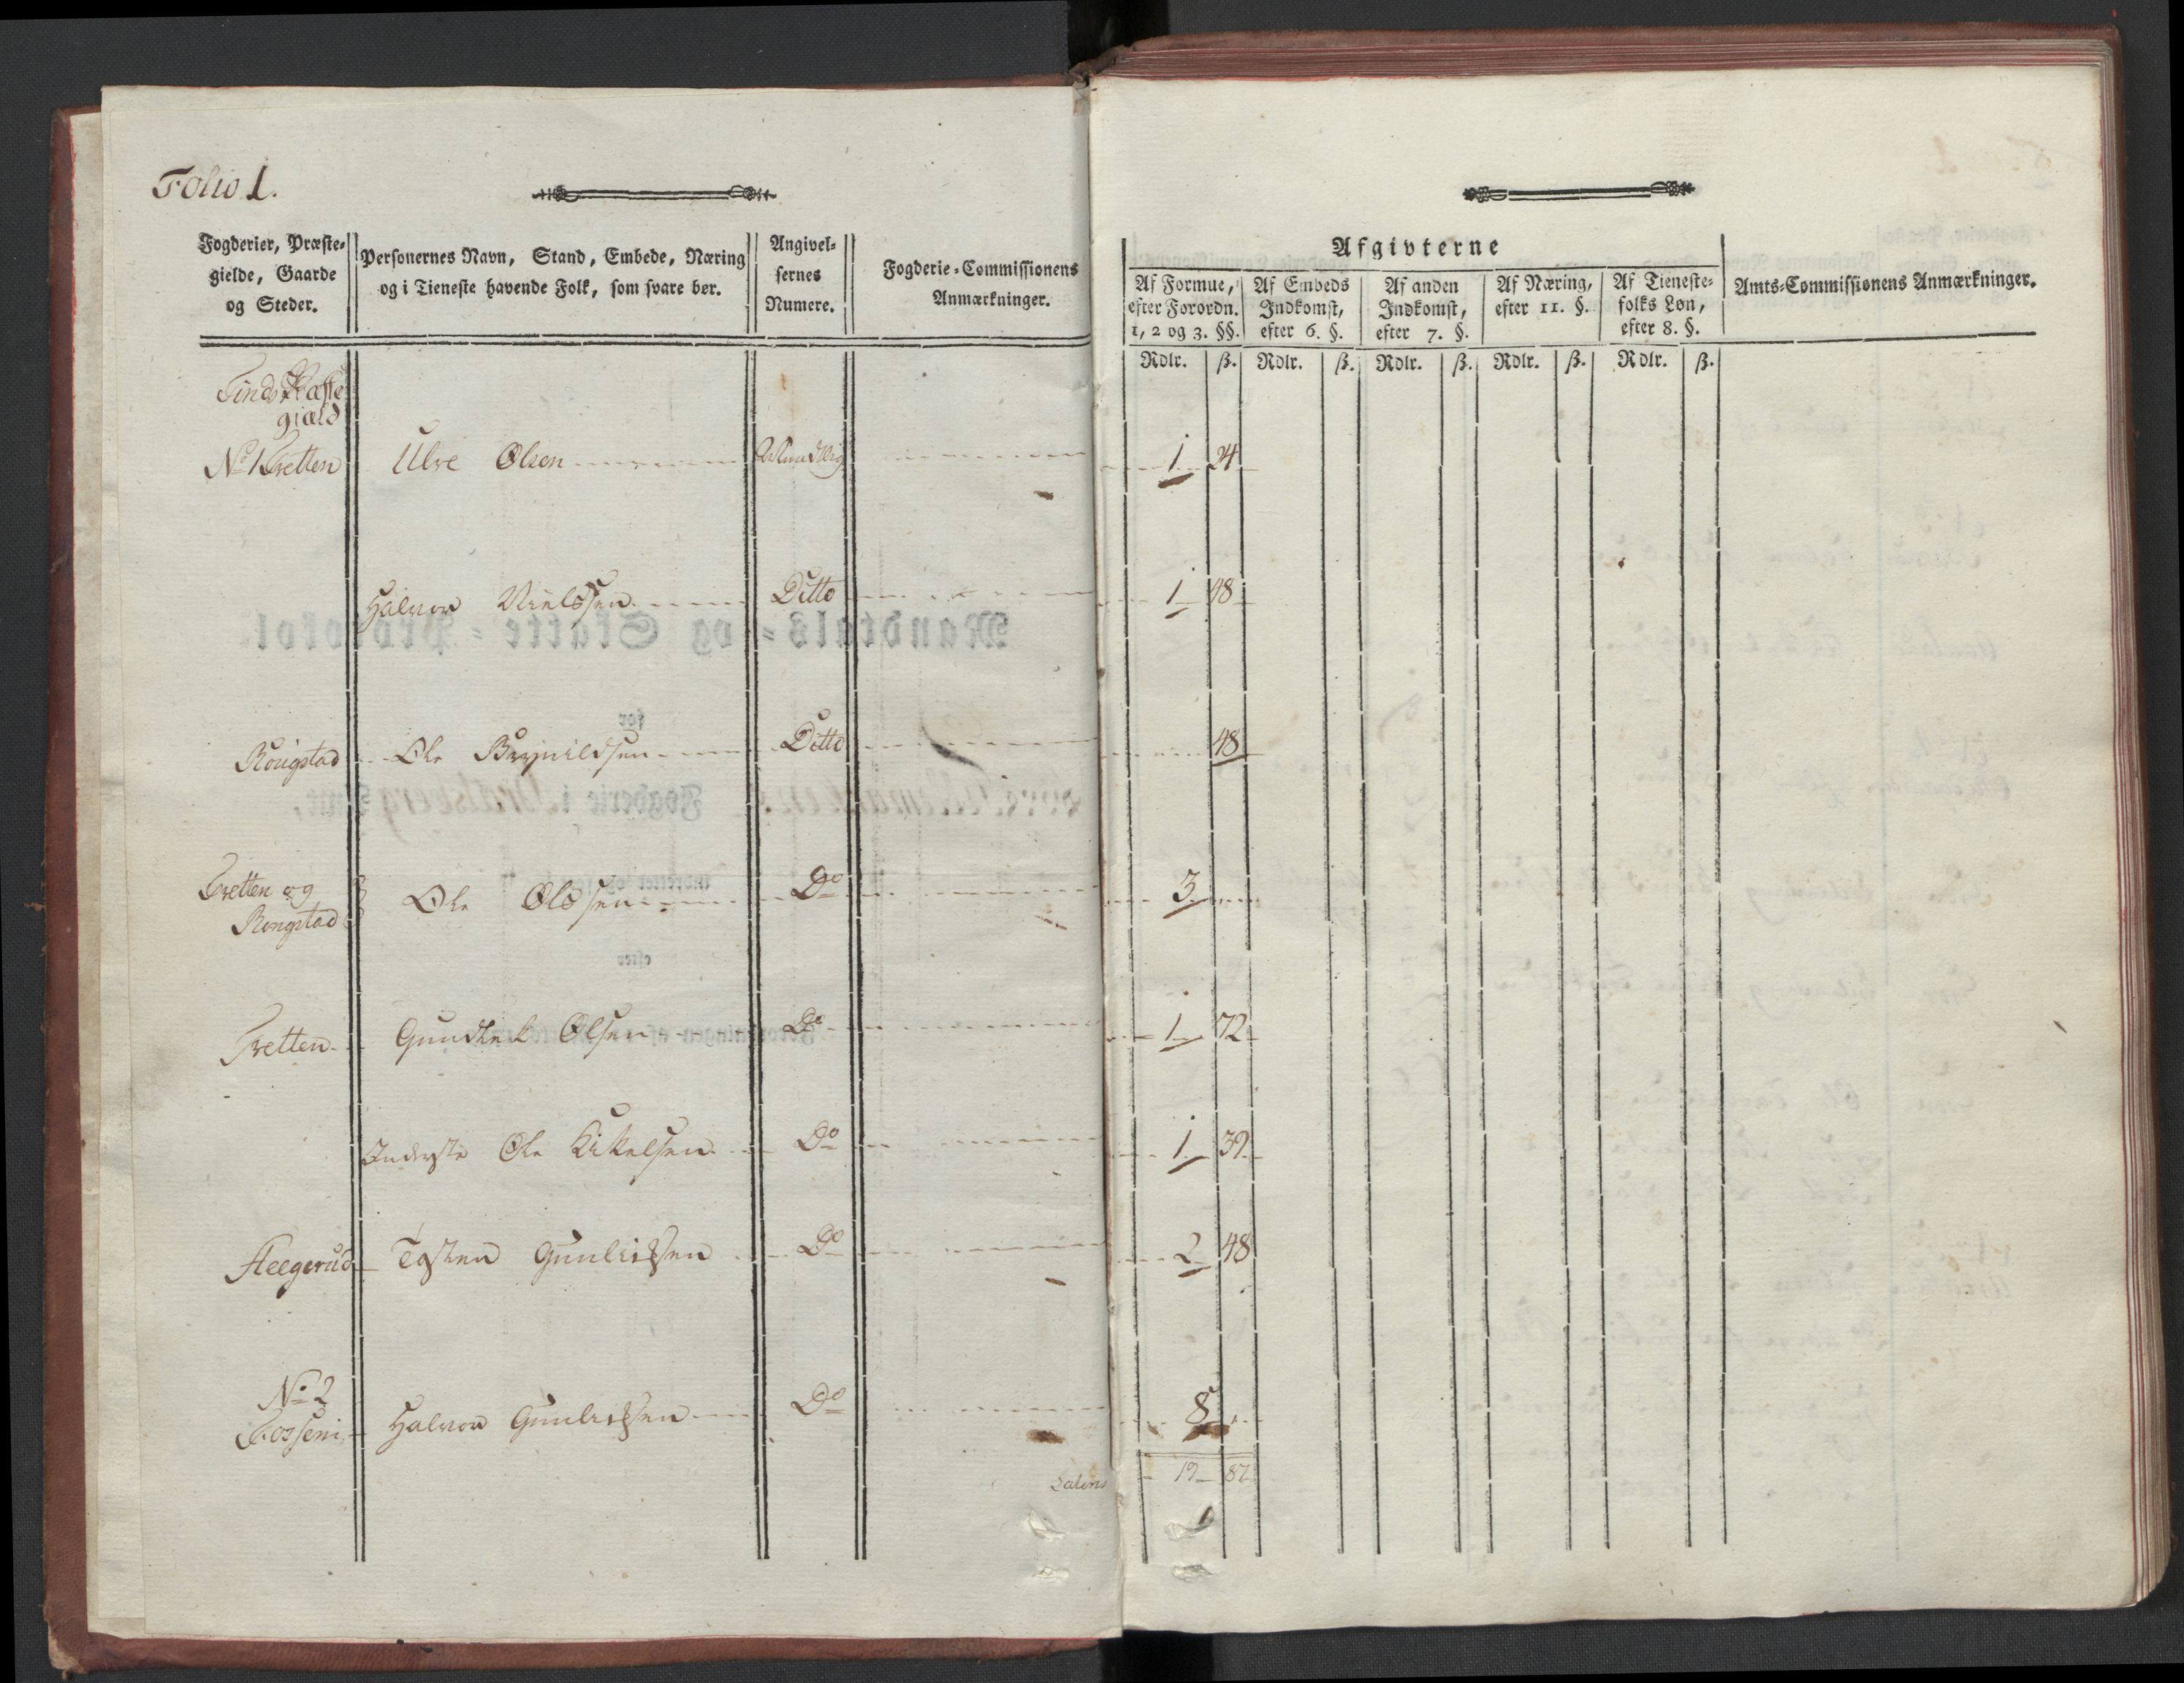 Folio 1.
Fogderier, Præste-
gielde, Gaarde
og Steder.
Personernes Navn, Stand, Embede, Næring
og i Tieneste havende Folk, som svare bør.
Angivel-
sernes
Numere.
Fogderie-Commissionens
Anmærkninger.
Afgivterne
Af Formue,
efter Forordn.
1, 2 og 3. §§.
Af Embeds
Indkomst,
efter 6. §.
Af anden
Indkomst,
efter 7. §.
Af Næring,
efter 11. §.
Af Tieneste-
folks Løn,
efter 8. §.
Amts-Commissionens Anmærkninger.
Rdlr. ß. Rdlr. ß. Rdlr. ß. Rdlr. ß. Rdlr. ß.
Tinds Præste
giæld
No 1 Tretten Ulve Olsen Mundtlig 1 24
Halvor Nielssen Ditto 1 48
Rougstad Ole Brynildsen Ditto 48
Tretten og
Rongstad Ole Olssen Do 3
Tretten Gundlek Olsen Do 1 72
Inderste Ole Kittelsen Do 1 39
Heegerud Tosten Gunleiksen Do 2 48
No 2
Fosseni Halvor Gunleiksen Do 8
Latus 19 87